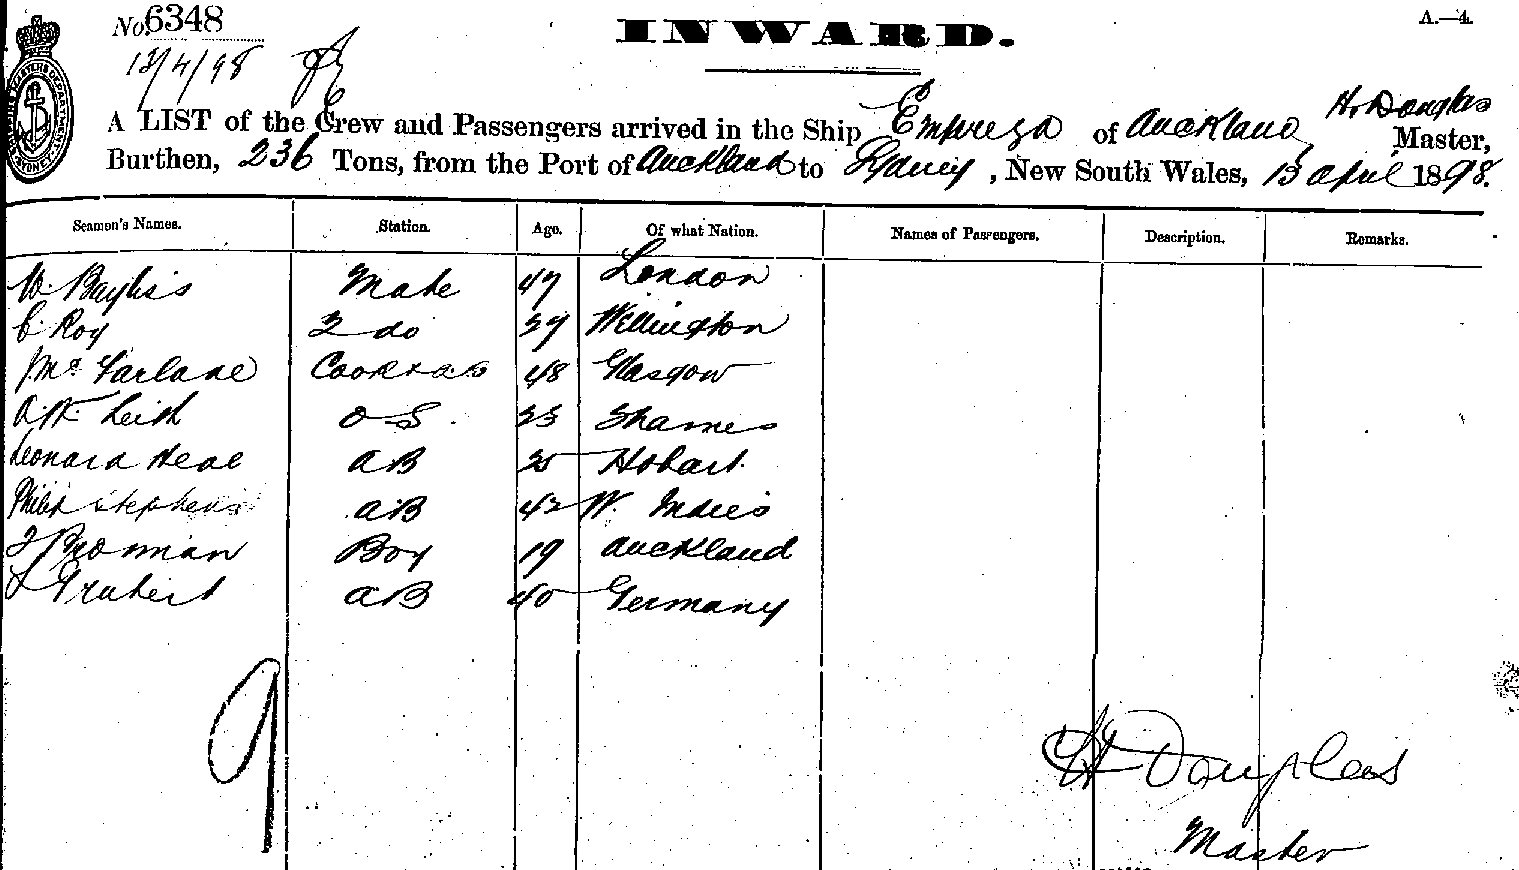 No. 6348
INWARD.
A.—4.
13/4/98
H. Douglas
A LIST of the Crew and Passengers arrived in the Ship Empreza of Auckland, Master,
Burthen, 236 Tons, from the Port of Auckland to Sydney, New South Wales, 13 April 1898.
Seamen's Names. Station. Age. Of what Nation. Names of Passengers. Description. Remarks.
W. Bayliss Mate 47 London
C. Roy 2 do Wellington
J. Mc Farlane Cook & AB 48 Glasgow
A. W. Leith O S. 23 Thames
Leonard Neal AB Hobart
Philip Stephens AB 42 W. Indies
Boy 19 Auckland
Grubert AB 40 Germany
9
H Douglas
Master